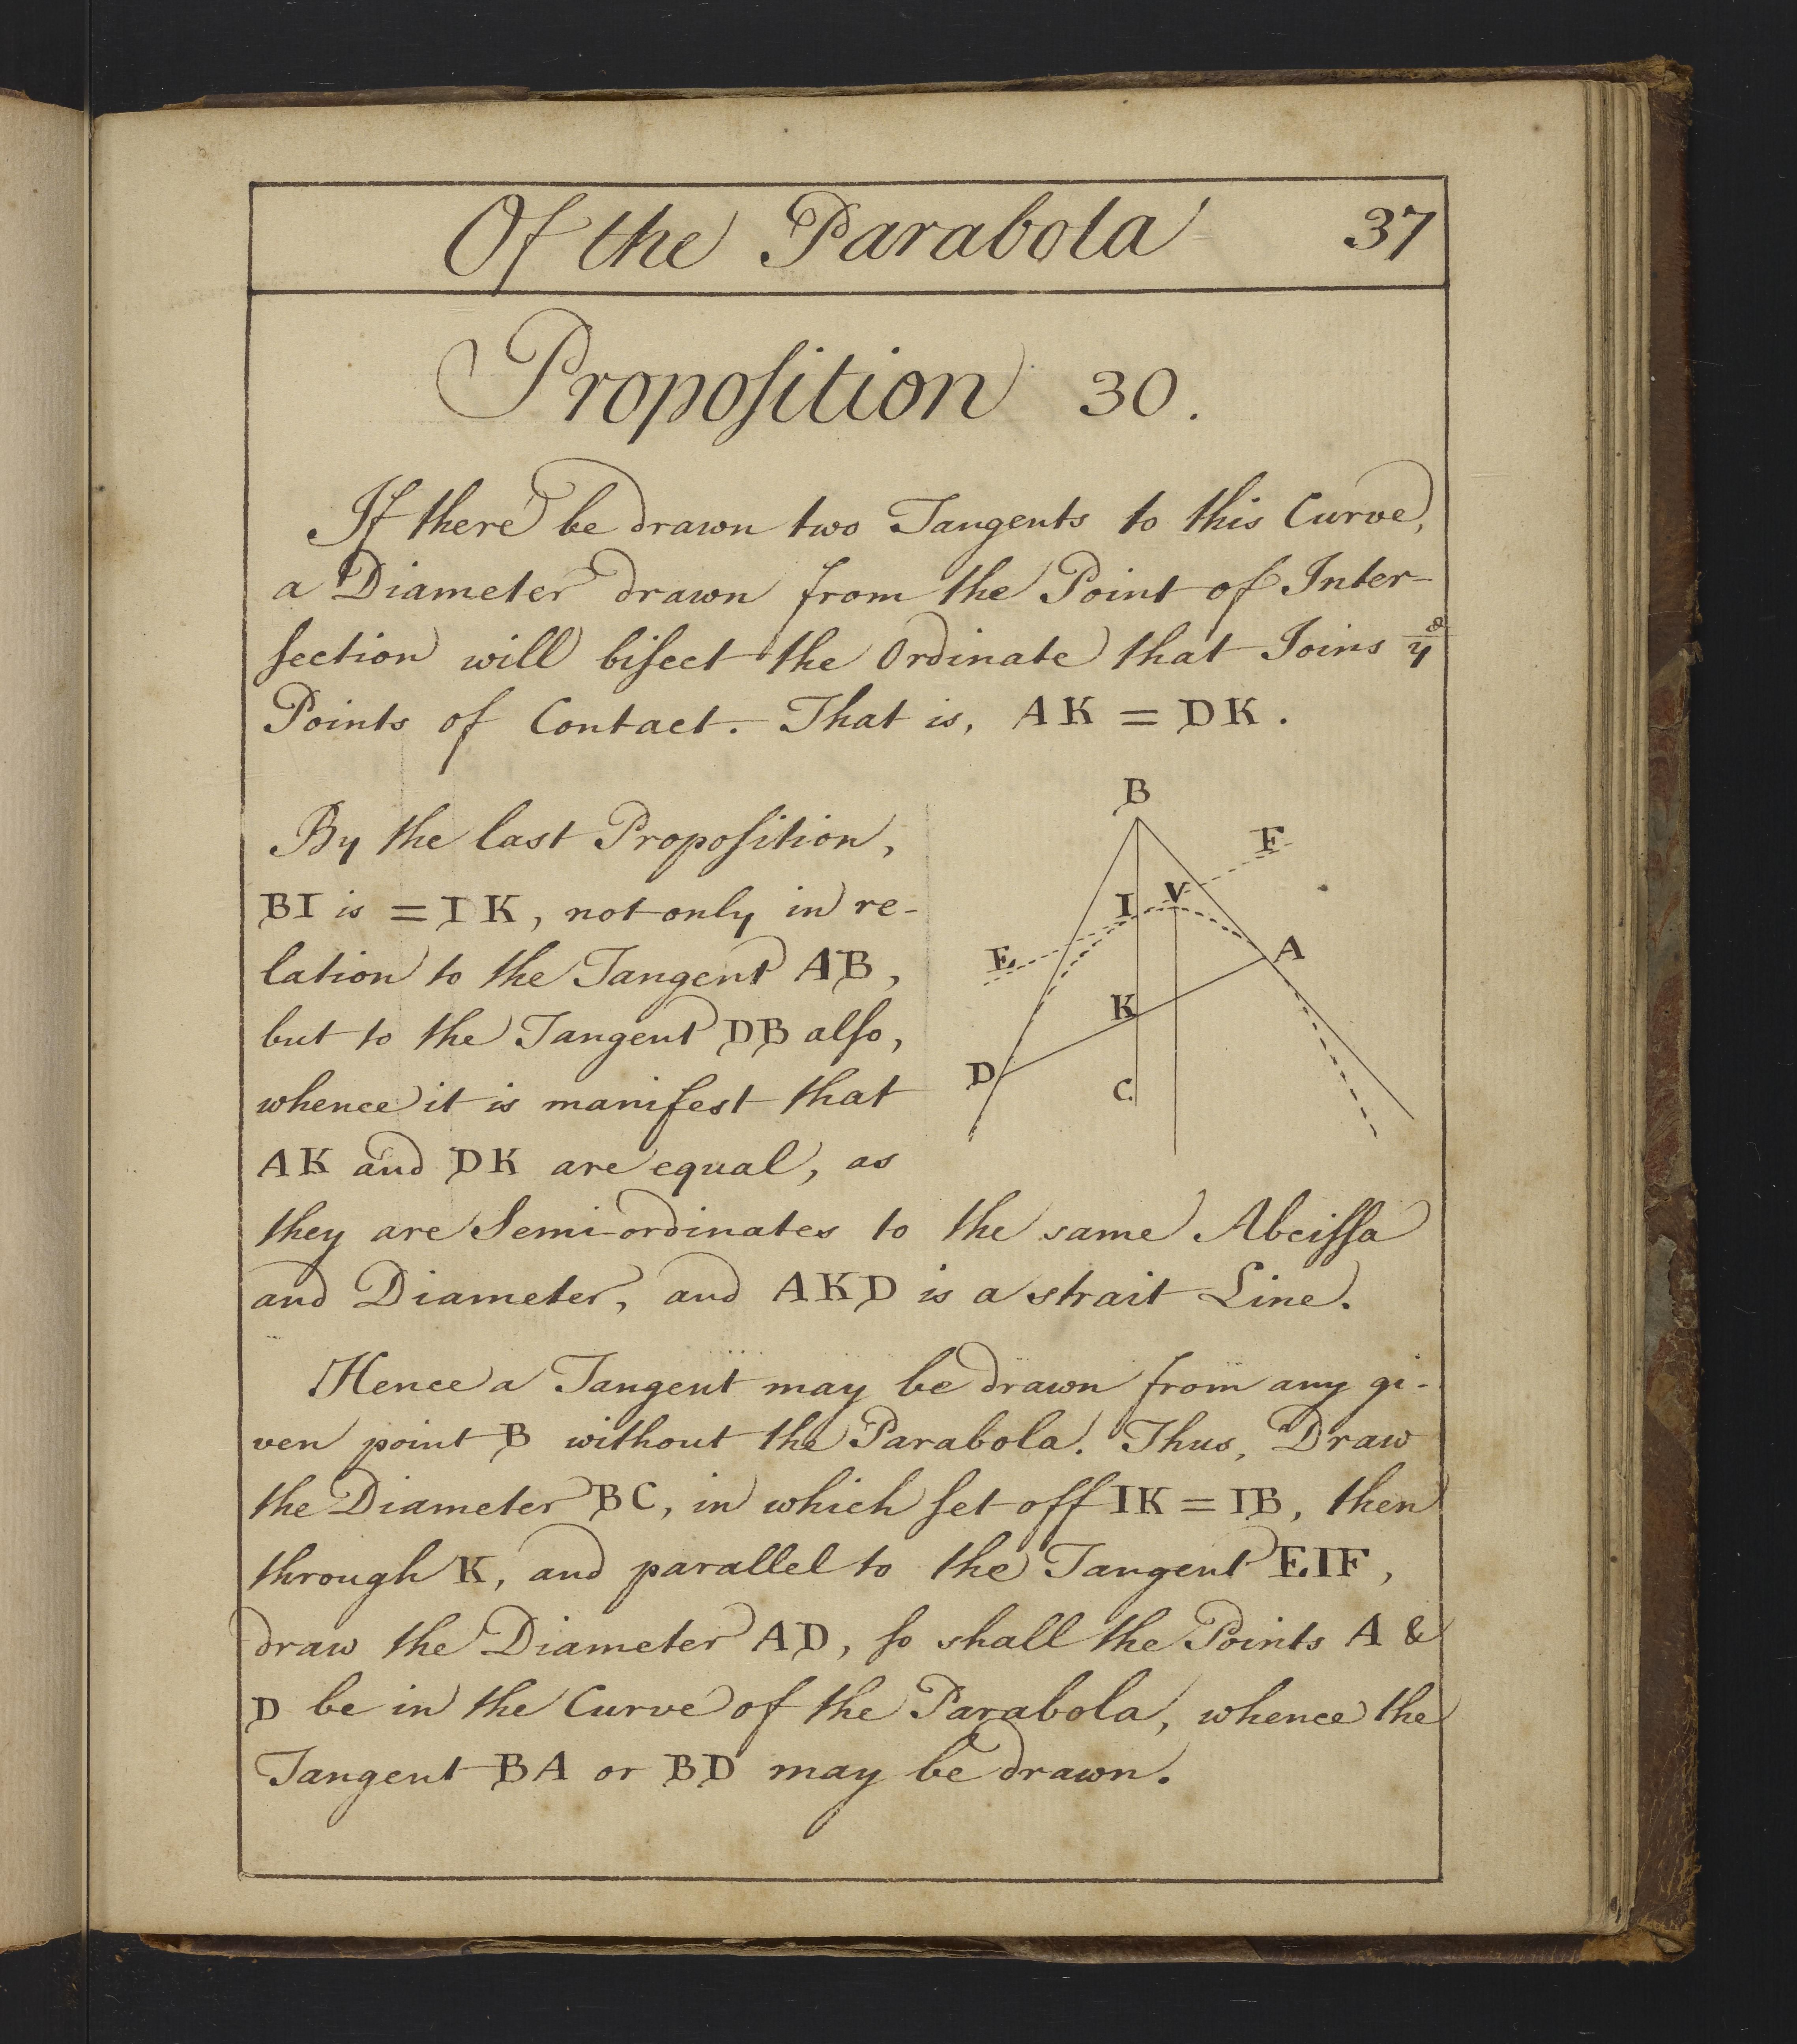 Of the Parabola 37
Propoſition 30.
If there be drawn two Tangents to this Curve,
a Diameter drawn from the Point of Inter-
ſection will biſect the Ordinate that Joins yᵉ
Points of Contact. That is, AK = DK.
By the last Propoſition,
BI is = IK, not only in re-
lation to the Tangent AB,
but to the Tangent DB alſo,
whence it is manifest that
AK and DK are equal, as
they are Semi-ordinates to the same Abciſſa
and Diameter, and AKD is a strait Line.
B
F
V
I
E
A
K
D
C
Hence a Tangent may be drawn from any gi-
ven point B without the Parabola. Thus, Draw
the Diameter BC, in which ſet off IK = IB, then
through K, and parallel to the Tangent EIF,
draw the Diameter AD, ſo shall the Points A &
D be in the Curve of the Parabola, whence the
Tangent BA or BD may be drawn.